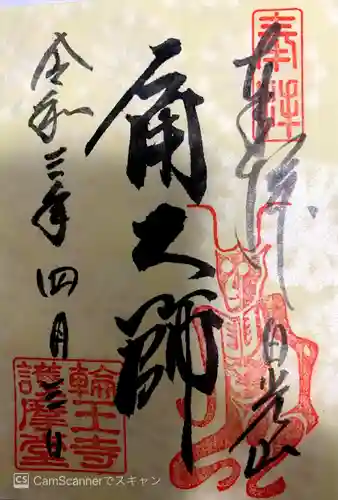 奉拝
奉拝 日光山
角大師
令和三年四月三日
輪王寺
護摩堂
CS CamScannerでスキャン